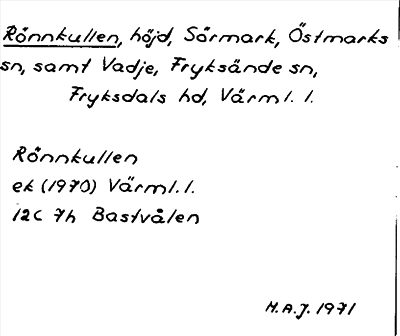 Rönnkullen, höjd, Sörmark, Östmarks
sn, samt Vadje, Fryksände sn,
Fryksdals hd, Värml. l.
Rönnkullen
ek (1970) Värml. l.
12C 7h Bastvålen
H.A.J. 1971